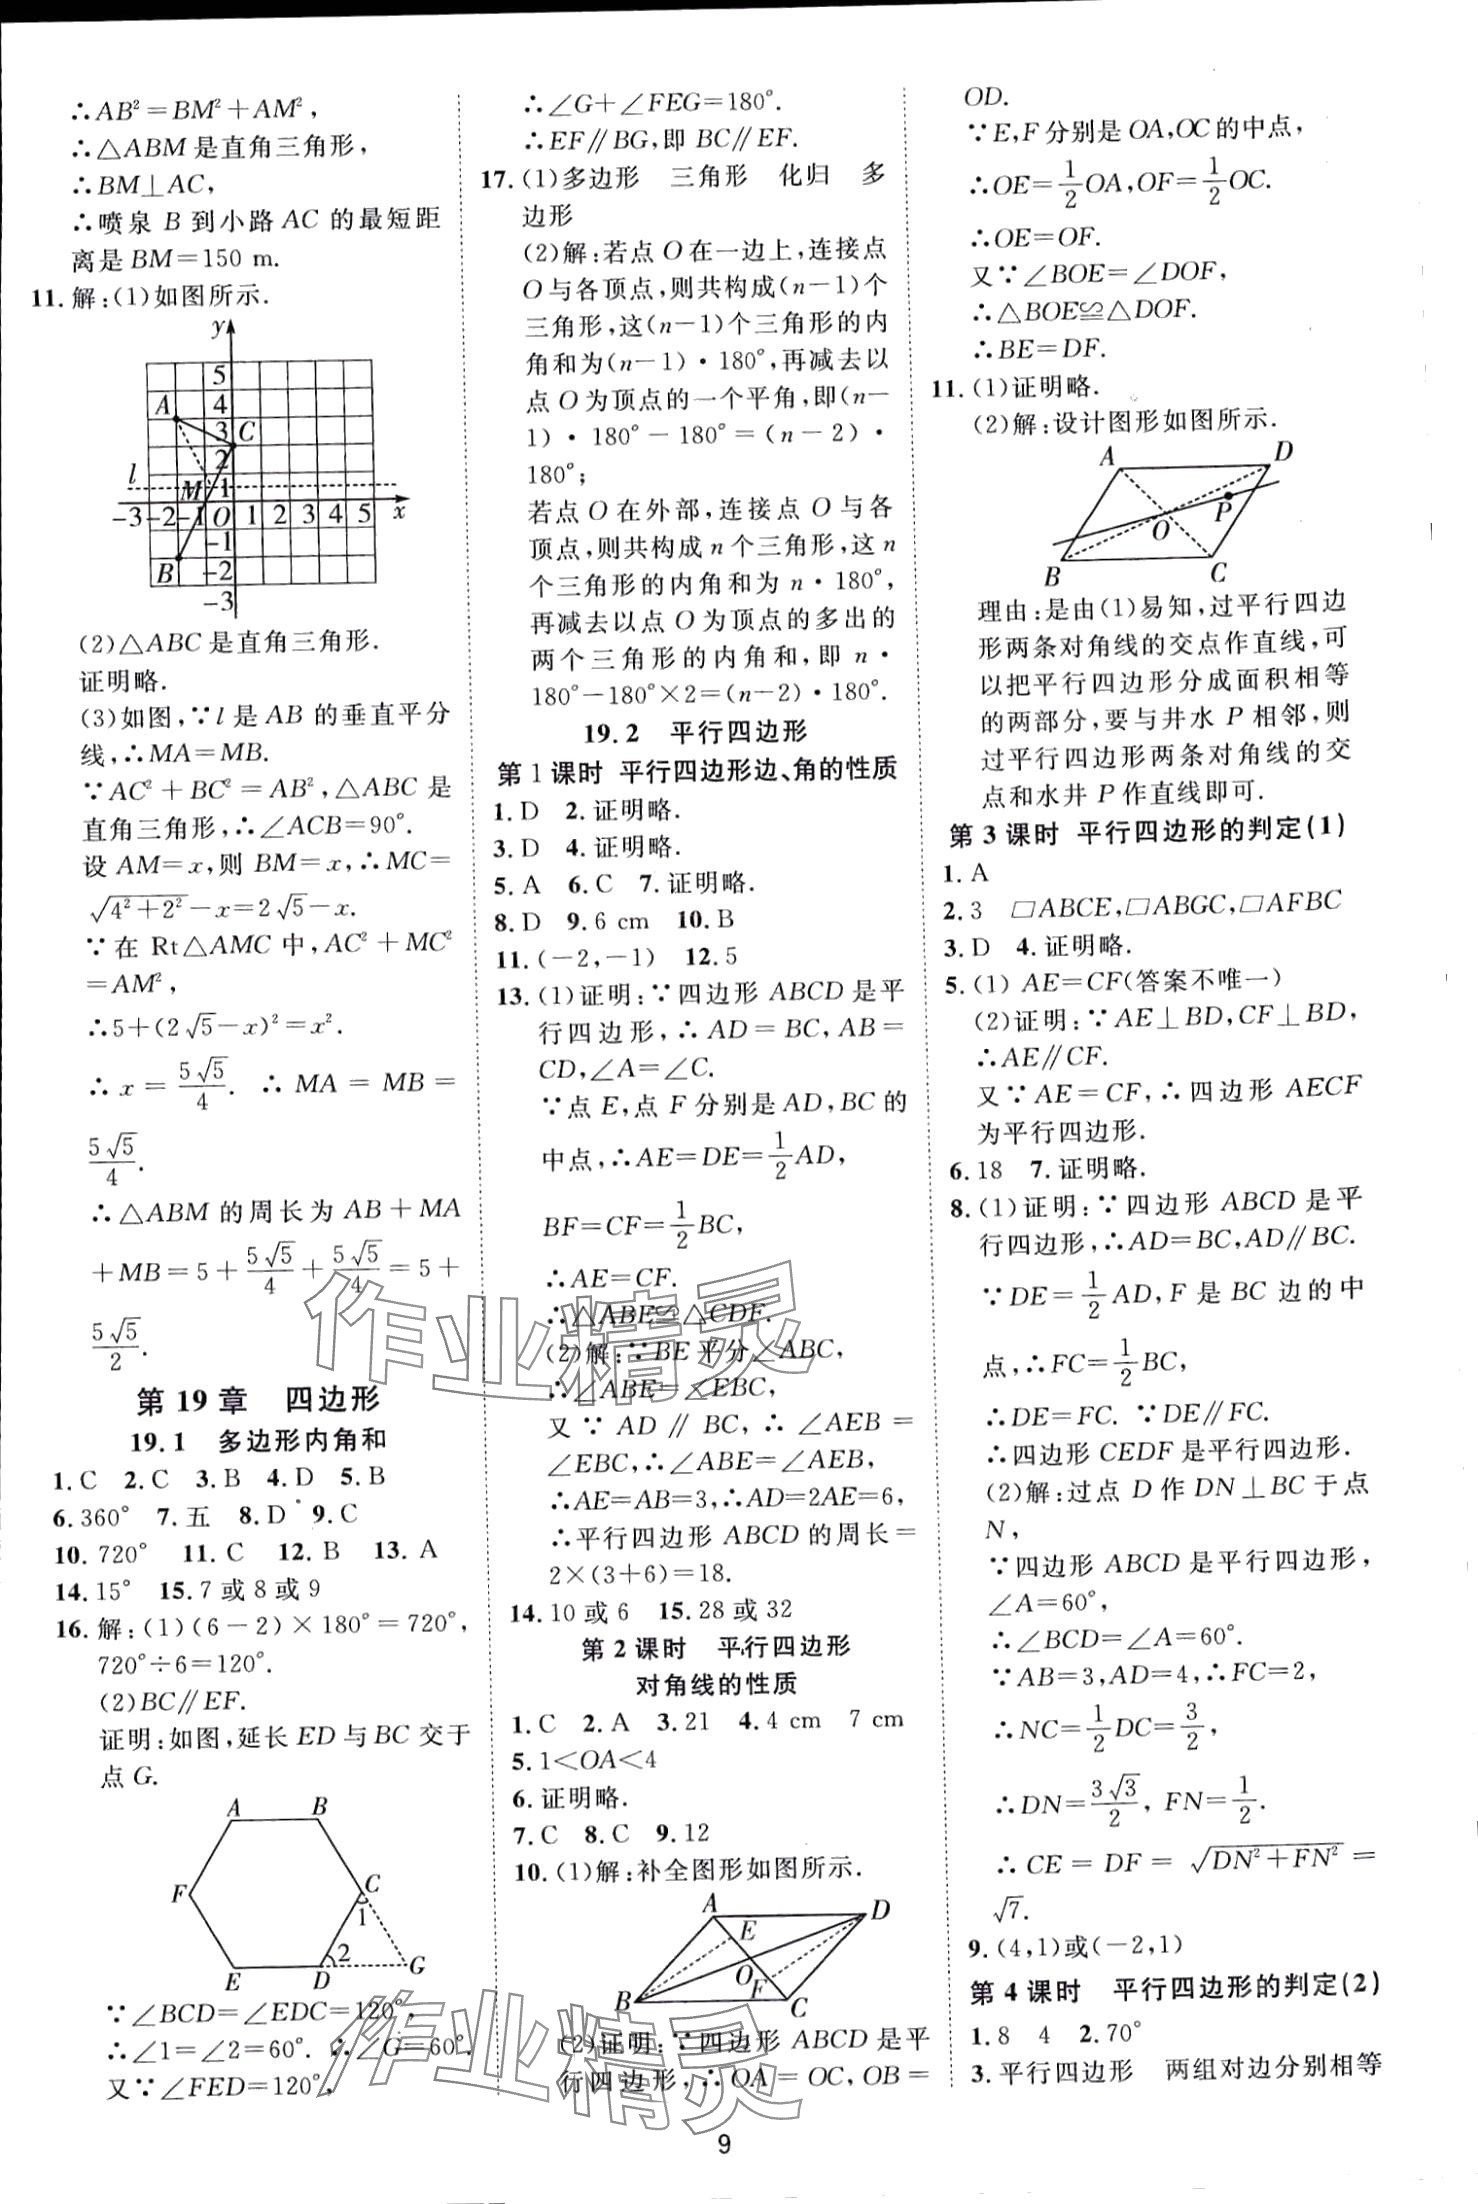 ∴AB²=BM²+AM²,
∴△ABM 是直角三角形,
∴BM⊥AC,
∴喷泉 B 到小路 AC 的最短距
离是 BM=150 m.
11. 解:(1)如图所示.
y
5
4
3
2
1
A
C
l
M
-3 -2 -1 O 1 2 3 4 5 x
-1
B
-2
-3
(2)△ABC 是直角三角形.
证明略.
(3)如图,∵l 是 AB 的垂直平分
线,∴MA=MB.
∵AC²+BC²=AB²,△ABC 是
直角三角形,∴∠ACB=90°.
设 AM=x,则 BM=x,∴MC=
√(4²+2²)-x=2√5-x.
∵在 Rt△AMC 中,AC²+MC²
=AM²,
∴5+(2√5-x)²=x².
∴x=5√5/4. ∴MA=MB=
5√5/4.
∴△ABM 的周长为 AB+MA
+MB=5+5√5/4+5√5/4=5+
5√5/2.
第 19 章 四边形
19.1 多边形内角和
1. C 2. C 3. B 4. D 5. B
6. 360° 7. 五 8. D 9. C
10. 720° 11. C 12. B 13. A
14. 15° 15. 7 或 8 或 9
16. 解:(1)(6-2)×180°=720°,
720°÷6=120°.
(2)BC∥EF.
证明:如图,延长 ED 与 BC 交于
点 G.
A B
F C
1
2
E D G
∵∠BCD=∠EDC=120°,
∴∠1=∠2=60°. ∴∠G=60°.
又∵∠FED=120°,
∴∠G+∠FEG=180°.
∴EF∥BG,即 BC∥EF.
17. (1)多边形 三角形 化归 多
边形
(2)解:若点 O 在一边上,连接点
O 与各顶点,则共构成(n-1)个
三角形,这(n-1)个三角形的内
角和为(n-1)·180°,再减去以
点 O 为顶点的一个平角,即(n-
1)·180°-180°=(n-2)·
180°;
若点 O 在外部,连接点 O 与各
顶点,则共构成 n 个三角形,这 n
个三角形的内角和为 n·180°,
再减去以点 O 为顶点的多出的
两个三角形的内角和,即 n·
180°-180°×2=(n-2)·180°.
19.2 平行四边形
第 1 课时 平行四边形边、角的性质
1. D 2. 证明略.
3. D 4. 证明略.
5. A 6. C 7. 证明略.
8. D 9. 6 cm 10. B
11. (-2,-1) 12. 5
13. (1)证明:∵四边形 ABCD 是平
行四边形,∴AD=BC,AB=
CD,∠A=∠C.
∵点 E,点 F 分别是 AD,BC 的
中点,∴AE=DE=1/2AD,
BF=CF=1/2BC,
∴AE=CF.
∴△ABE≌△CDF.
(2)解:∵BE 平分∠ABC,
∴∠ABE=∠EBC,
又∵AD∥BC,∴∠AEB=
∠EBC,∴∠ABE=∠AEB,
∴AE=AB=3,∴AD=2AE=6,
∴平行四边形 ABCD 的周长=
2×(3+6)=18.
14. 10 或 6 15. 28 或 32
第 2 课时 平行四边形
对角线的性质
1. C 2. A 3. 21 4. 4 cm 7 cm
5. 1<OA<4
6. 证明略.
7. C 8. C 9. 12
10. (1)解:补全图形如图所示.
A D
E
O
F
B C
(2)证明:∵四边形 ABCD 是平
行四边形,∴OA=OC,OB=
OD.
∵E,F 分别是 OA,OC 的中点,
∴OE=1/2OA,OF=1/2OC.
∴OE=OF.
又∵∠BOE=∠DOF,
∴△BOE≌△DOF.
∴BE=DF.
11. (1)证明略.
(2)解:设计图形如图所示.
A D
P
O
B C
理由:是由(1)易知,过平行四边
形两条对角线的交点作直线,可
以把平行四边形分成面积相等
的两部分,要与井水 P 相邻,则
过平行四边形两条对角线的交
点和水井 P 作直线即可.
第 3 课时 平行四边形的判定(1)
1. A
2. 3 □ABCE,□ABGC,□AFBC
3. D 4. 证明略.
5. (1) AE=CF(答案不唯一)
(2)证明:∵AE⊥BD,CF⊥BD,
∴AE∥CF.
又∵AE=CF,∴四边形 AECF
为平行四边形.
6. 18 7. 证明略.
8. (1)证明:∵四边形 ABCD 是平
行四边形,∴AD=BC,AD∥BC.
∵DE=1/2AD,F 是 BC 边的中
点,∴FC=1/2BC,
∴DE=FC. ∵DE∥FC.
∴四边形 CEDF 是平行四边形.
(2)解:过点 D 作 DN⊥BC 于点
N,
∵四边形 ABCD 是平行四边形,
∠A=60°,
∴∠BCD=∠A=60°.
∵AB=3,AD=4,∴FC=2,
∴NC=1/2DC=3/2,
∴DN=3√3/2, FN=1/2.
∴CE=DF=√(DN²+FN²)=
√7.
9. (4,1)或(-2,1)
第 4 课时 平行四边形的判定(2)
1. 8 4 2. 70°
3. 平行四边形 两组对边分别相等
作业精灵
作业精灵
9